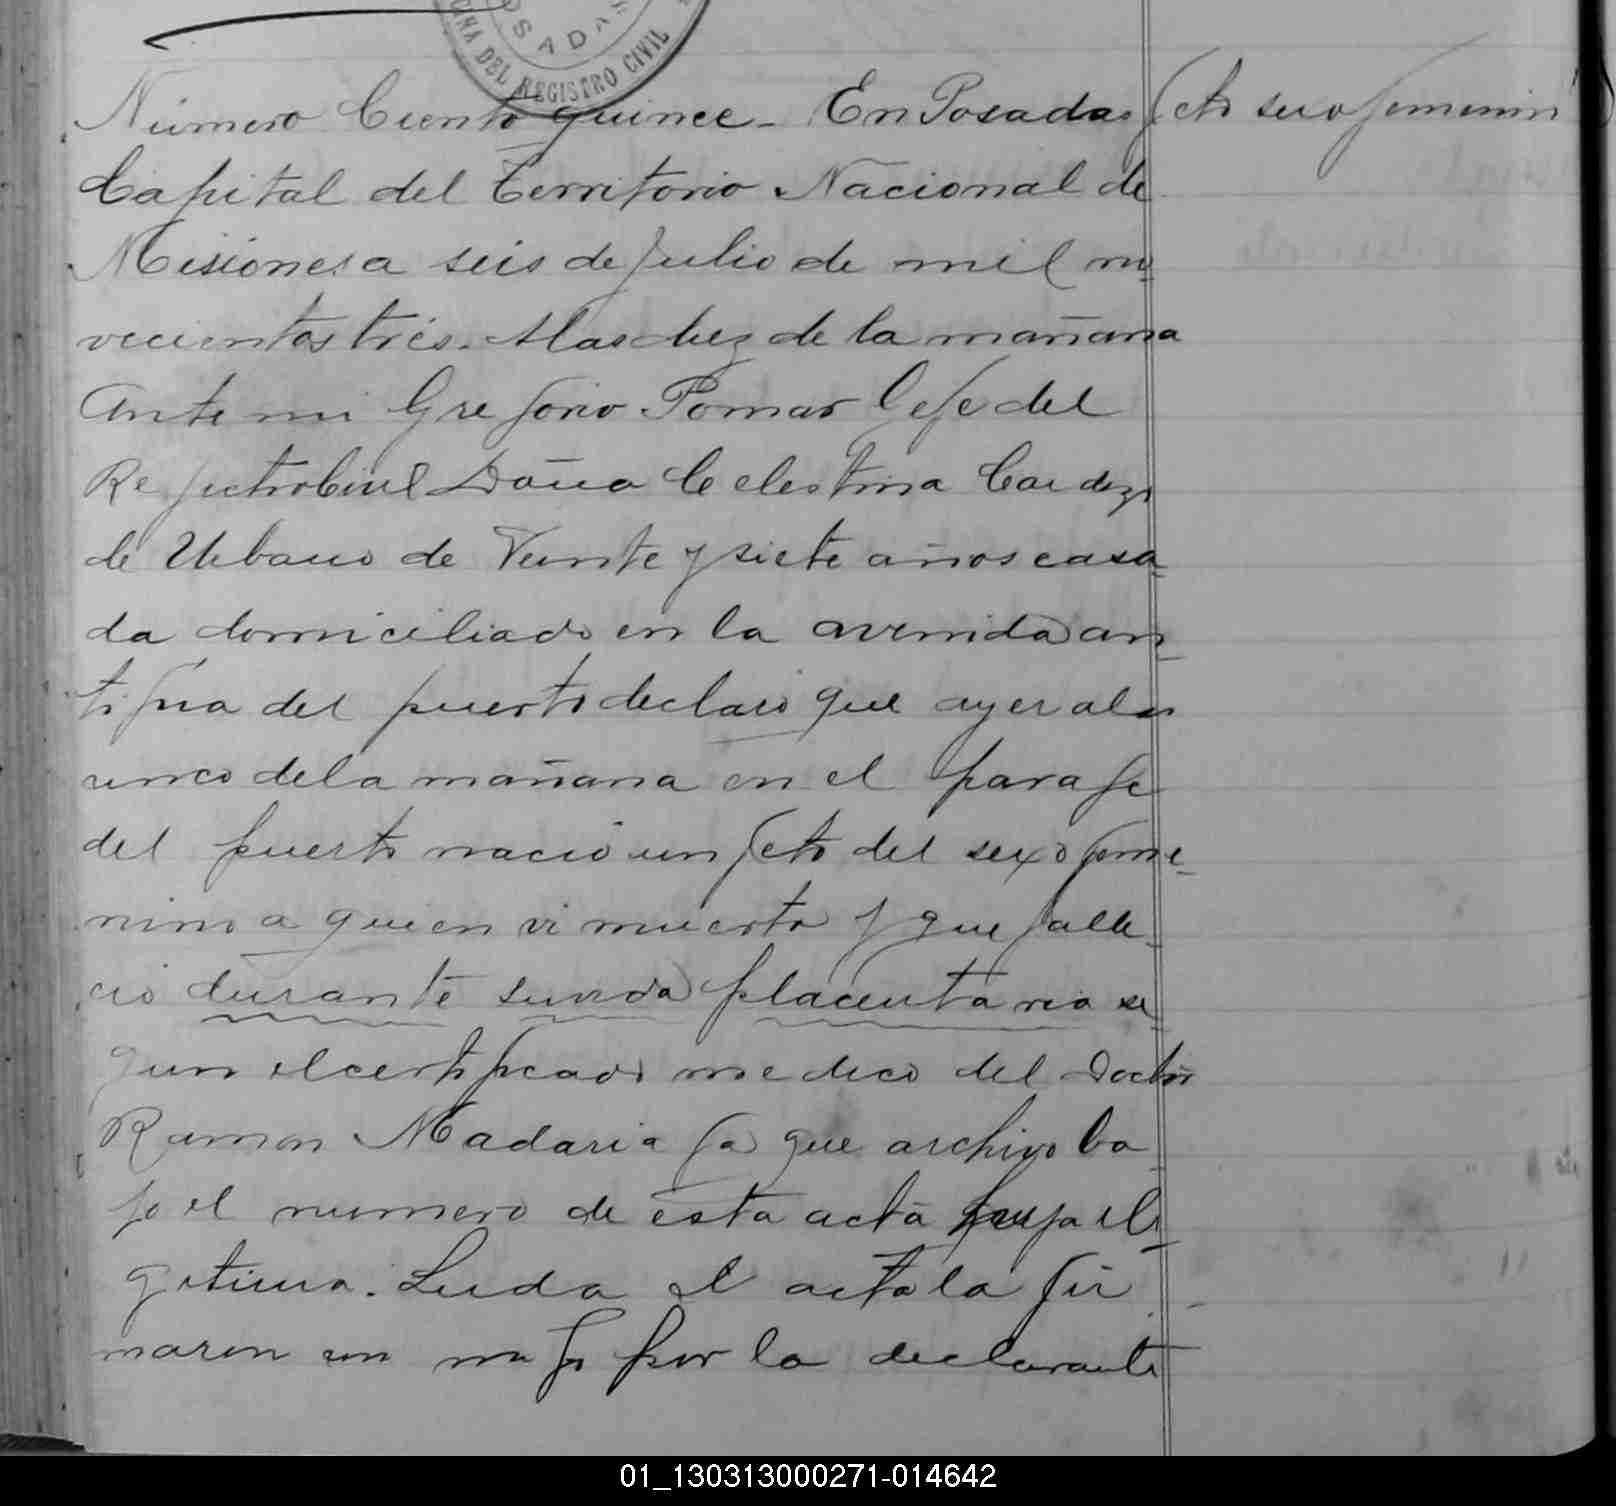 POSADAS
OFICINA DEL REGISTRO CIVIL
Número Ciento quince - En Posadas
feto sexo femenin
Capital del Territorio Nacional de
Misiones a seis de Julio de mil no
vecientos trés. Alas diez de la mañana
Ante mi Gregorio Pomar Gefe del
Registro Civil Doña Celestina Cardozo
de Urbano de Veinte y siete años casa
da domiciliado en la avenida an
tigua del puerto declaró que ayer alas
cinco de la mañana en el paraje
del puerto nació un feto del sexo feme
nino a quien vi muerto y que falle
ció durante su vida placentaria se
gun el certificado medico del Doctor
Ramon Madariaga que archivo ba
jo el numero de esta acta
getima. Leida el acta la fir
maron con migo por la declarante
01_130313000271-014642